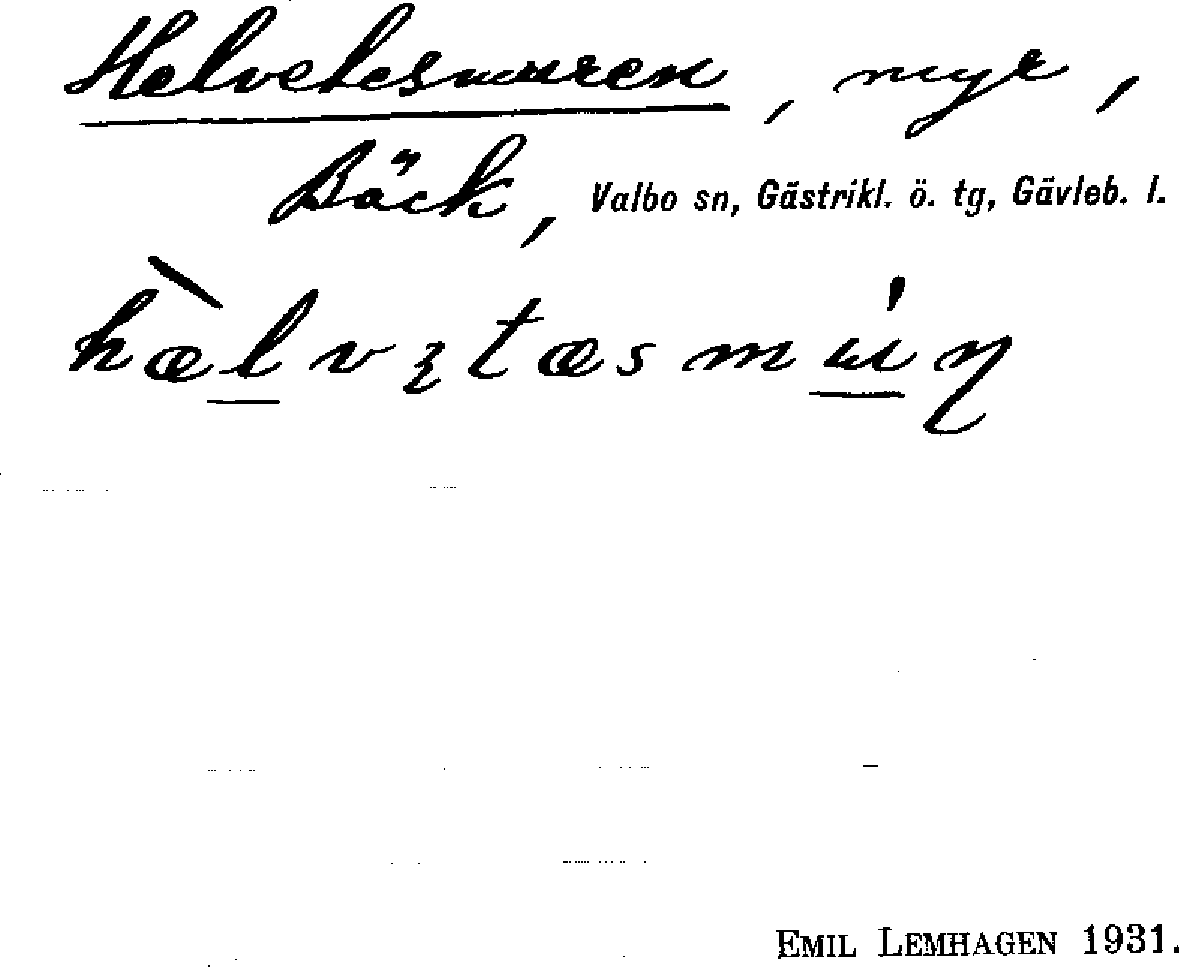 Helvetesmuren, myr,
Bäck, Valbo sn, Gästrikl. ö. tg, Gävleb. l.
hæ̀lvətæsmúɳ
EMIL LEMHAGEN 1931.